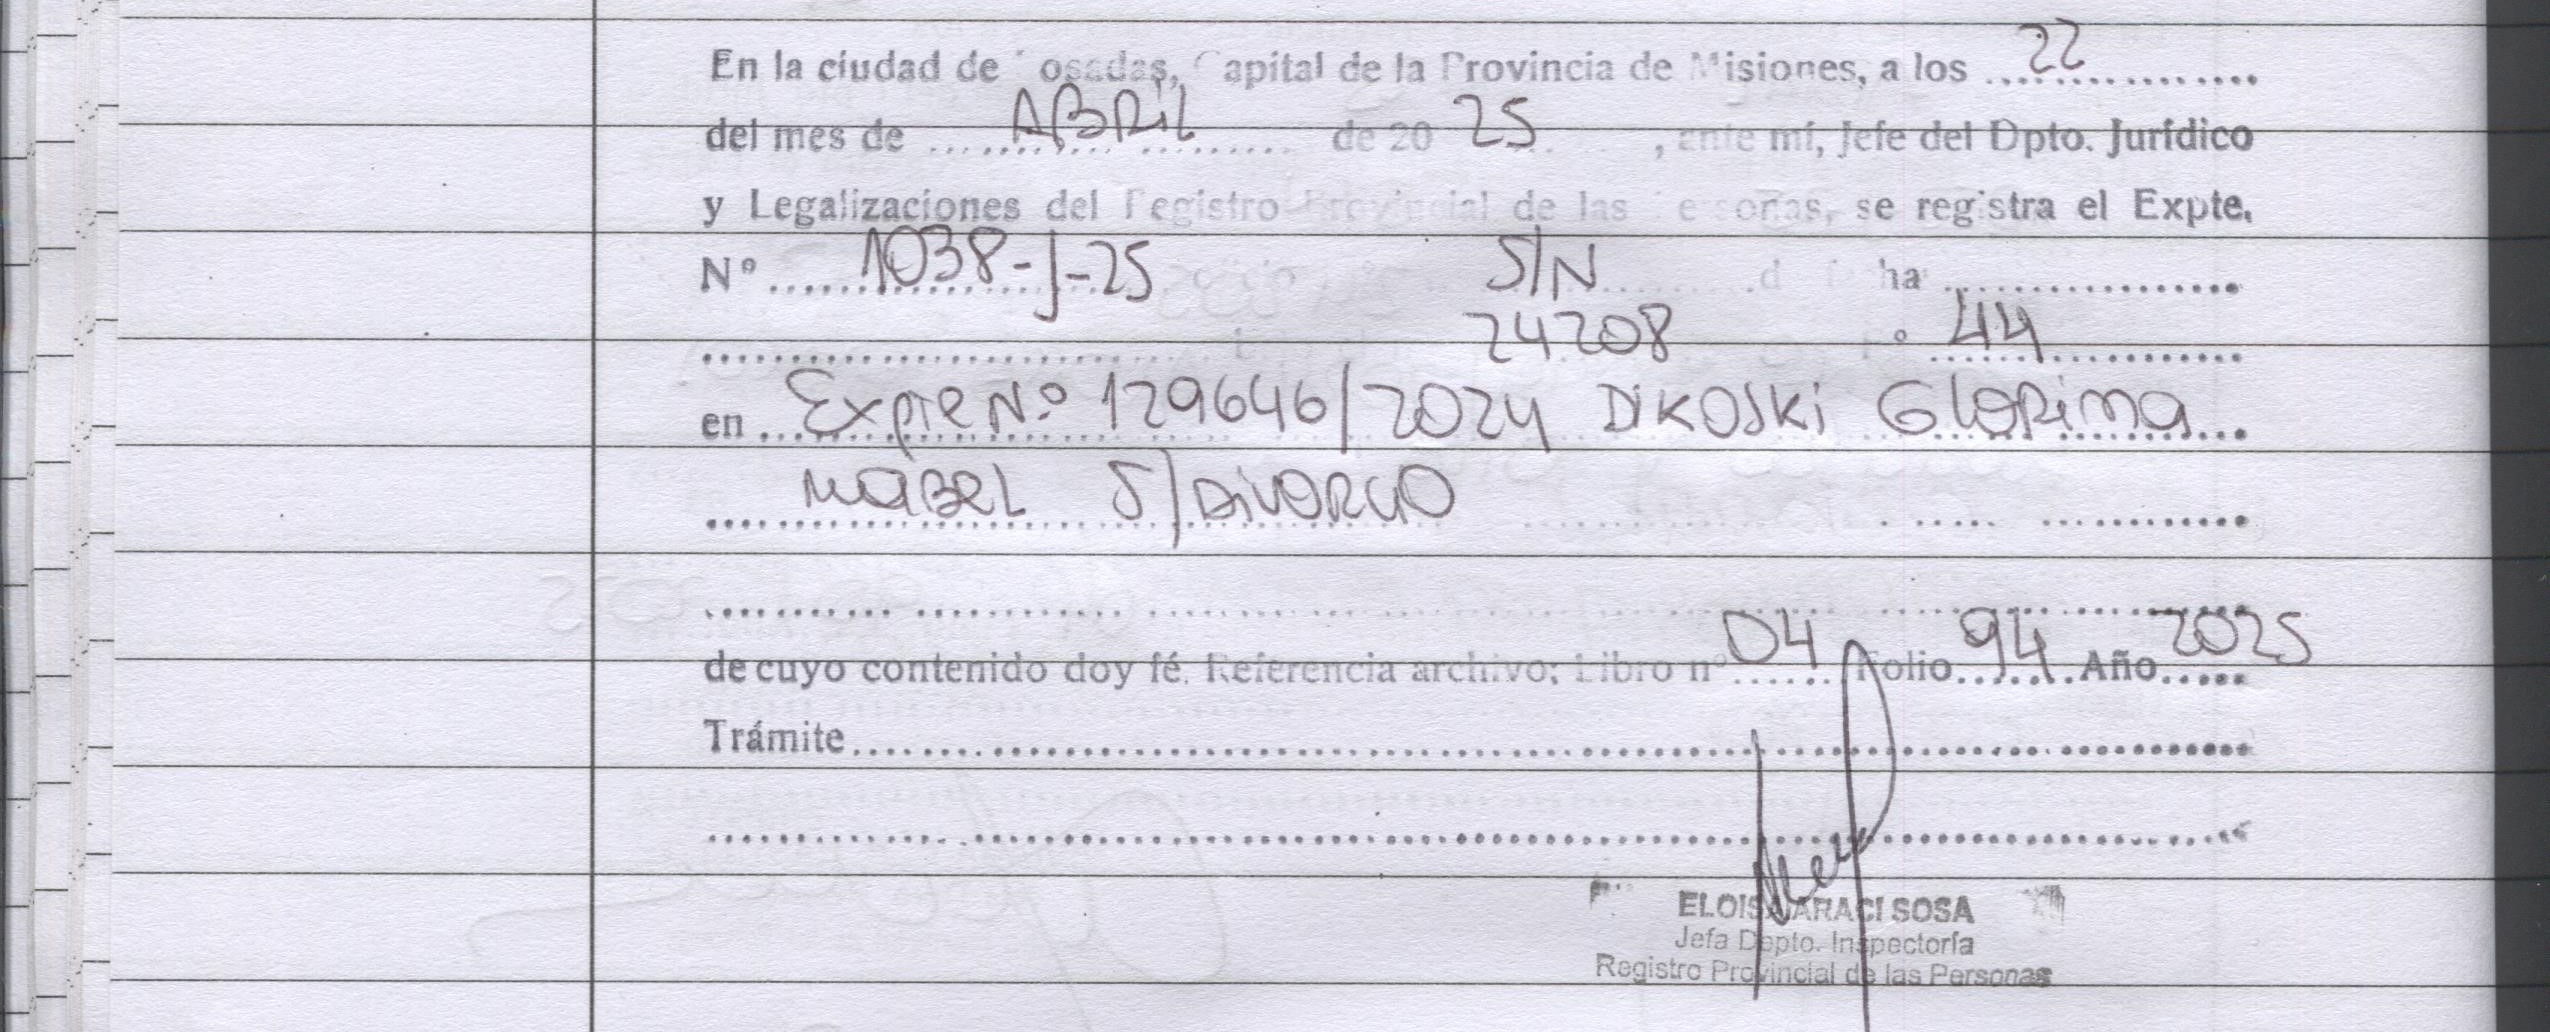 En la ciudad de Posadas, Capital de la Provincia de Misiones, a los 22
del mes de ABRIL de 20 25, ante mí, Jefe del Dpto. Jurídico
y Legalizaciones del Registro Provincial de las Personas, se registra el Expte.
Nº 1038-J-25 S/N de fecha
24208 º 44
en Expte Nº 129646/2024 DIKOSKI GLORIMA
MABEL S/DIVORCIO
de cuyo contenido doy fé. Referencia archivo; Libro nº 04 Folio 94 Año 2025
Trámite
ELOISA ARACI SOSA
Jefa Depto. Inspectoría
Registro Provincial de las Personas